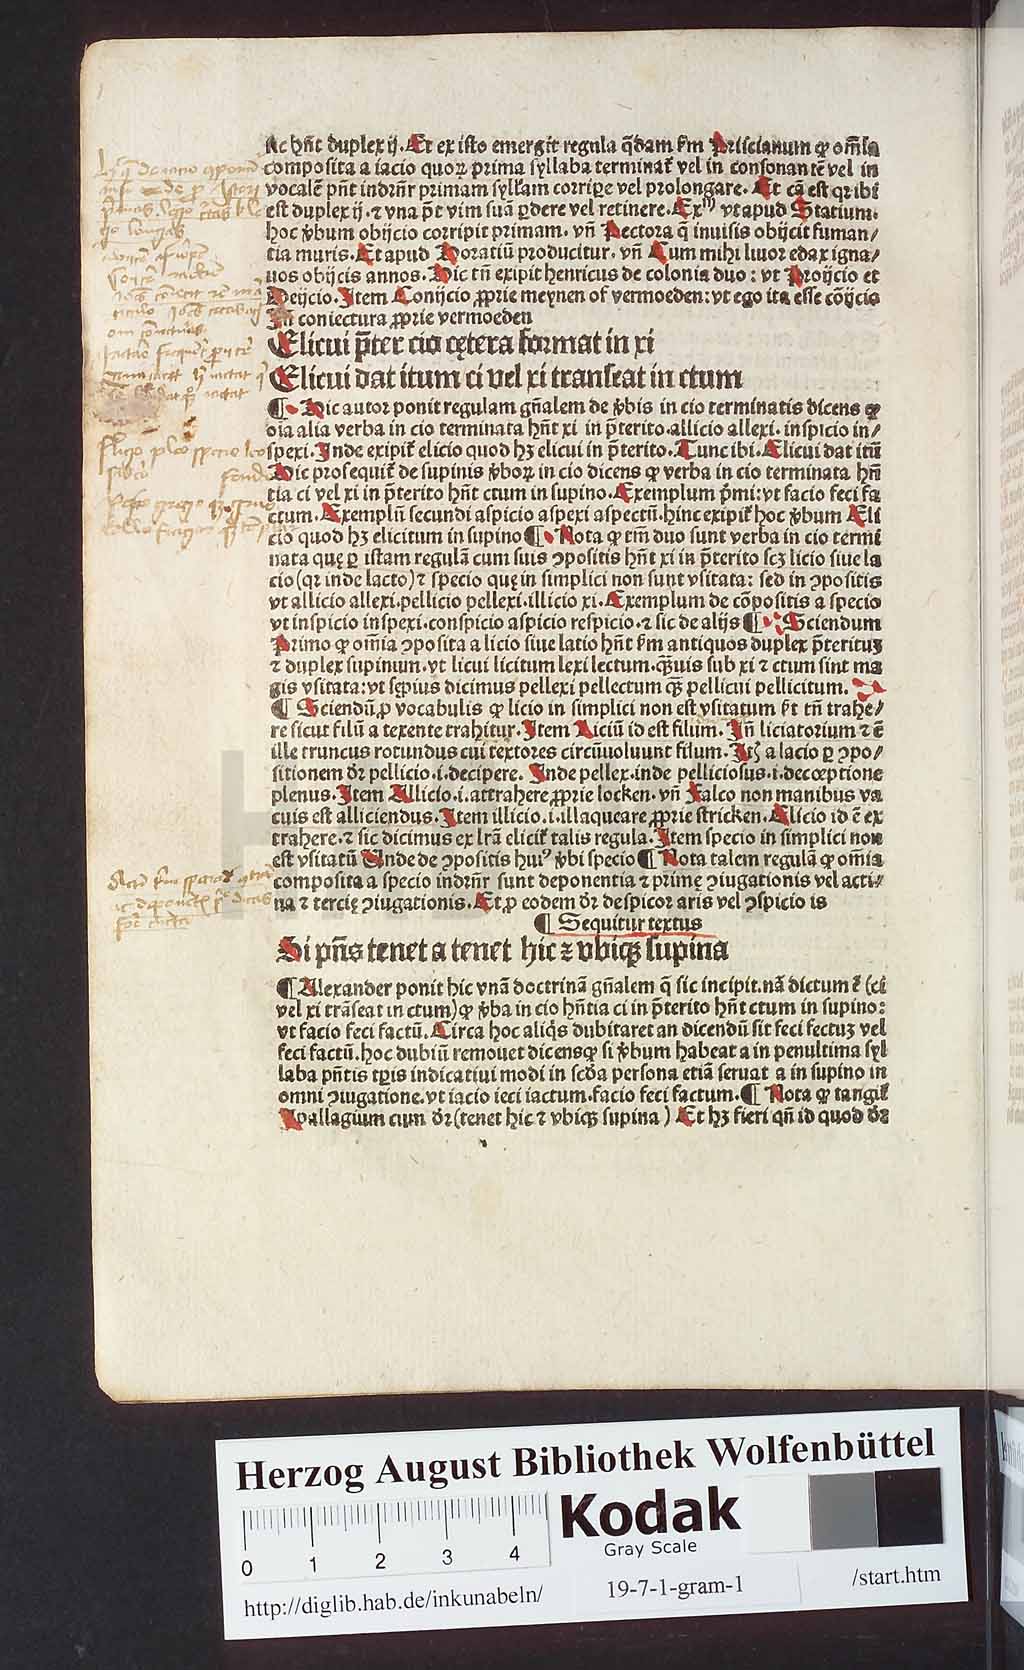 Ac hn̄t duplex ij. Et ex isto emergit regula q̄dam ẜm Priscianum ꝙ om̄ia
composita a iacio quoꝝ prima syllaba terminat᷑ vel in consonantē vel in
vocalē pn̄t indrn̄r primam syll'am corripe vel prolongare. Et cā est qr ibi
est duplex ij. ⁊ vna p̄t vim suā ꝑdere vel retinere. Exᵐ vt apud Statium.
hoc v̄bum obijcio corripit primam. vn̄ Pectora q̄ inuisis obijcit fuman/
tia muris. Et apud Horatiū producitur. vn̄ Cum mihi liuor edax igna/
uos obijcis annos. Hic tn̄ exipit henricus de colonia duo : vt Proijcio et
Deijcio. Item Conijcio ꝓprie meynen of vermoeden: vt ego ita esse cōijcio
In coniectura ꝓprie vermoeden
Elicui p̄ter cio cętera format in xi
Elicui dat itum ci vel xi transeat in ctum
¶ Hic autor ponit regulam gn̄alem de v̄bis in cio terminatis dicens ꝙ
oīa alia verba in cio terminata hn̄t xi in p̄terito. allicio allexi. inspicio in/
spexi. Inde exipit᷑ elicio quod hꝫ elicui in p̄terito. Tunc ibi. Elicui dat itū
Hic prosequit᷑ de supinis v̄boꝝ in cio dicens ꝙ verba in cio terminata hn̄
tia ci vel xi in p̄terito hn̄t ctum in supino. Exemplum p̄mi: vt facio feci fa
ctum. Exemplū secundi aspicio aspexi aspectū. hinc exipit᷑ hoc v̄bum Eli
cio quod hꝫ elicitum in supino ¶ Nota ꝙ tm̄ duo sunt verba in cio termi
nata quę ꝑ istam regulā cum suis ꝯpositis hn̄t xi in p̄terito scꝫ licio siue la
cio (qr inde lacto) ⁊ specio quę in simplici non sunt vsitata: sed in ꝯpositis
vt allicio allexi. pellicio pellexi. illicio xi. Exemplum de cōpositis a specio
vt inspicio inspexi. conspicio aspicio respicio. ⁊ sic de alijs ¶ Sciendum
Primo ꝙ om̄ia ꝯposita a licio siue latio hn̄t ẜm antiquos duplex p̄terituꝫ
⁊ duplex supinum. vt licui licitum lexi lectum. qꝫuis sub xi ⁊ ctum sint ma
gis vsitata: vt sępius dicimus pellexi pellectum qꝫ pellicui pellicitum.
¶ Sciendū ꝓ vocabulis ꝙ licio in simplici non est vsitatum ẜt tn̄ trahe/
re sicut filū a texente trahitur. Item Liciū id est filum. In̄ liciatorium ⁊ ē
ille truncus rotundus cui textores circūuoluunt filum. Itꝫ a lacio ꝑ ꝯpo/
sitionem dr̄ pellicio .i. decipere. Inde pellex. inde pelliciosus .i. decceptione
plenus. Item Allicio .i. attrahere ꝓprie locken. vn̄ Falco non manibus va
cuis est alliciendus. Item illicio .i. illaqueare ꝓprie stricken. Elicio id ē ex
trahere. ⁊ sic dicimus ex lr̄a elicit᷑ talis regula. Item specio in simplici non
est vsitatū Unde de ꝯpositis huiꝰ v̄bi specio ¶ Nota talem regulā ꝙ om̄ia
composita a specio indrn̄r sunt deponentia ⁊ primę ꝯiugationis vel acti/
na ⁊ tercię ꝯiugationis. Et ꝓ eodem dr̄ despicor aris vel ꝯspicio is
¶ Sequitur textus
Si pn̄s tenet a tenet hic ⁊ vbiqꝫ supina
¶ Alexander ponit hic vnā doctrinā gn̄alem q̄ sic incipit. nā dictum ē (ci
vel xi trāseat in ctum) ꝙ v̄ba in cio hn̄tia ci in p̄terito hn̄t ctum in supino:
vt facio feci factū. Circa hoc aliq̄s dubitaret an dicendū sit feci fectuꝫ vel
feci factū. hoc dubiū remouet dicens ꝙ si v̄bum habeat a in penultima syl
laba pn̄tis tꝑis indicatiui modi in scd̄a persona etiā seruat a in supino in
omni ꝯiugatione. vt iacio ieci iactum. facio feci factum. ¶ Nota ꝙ tangit᷑
Ypallagium cum dr̄ (tenet hic ⁊ vbiqꝫ supina ) Et hꝫ fieri qn̄ id quod dr̄
Herzog August Bibliothek Wolfenbüttel
Kodak
Gray Scale
0 1 2 3 4
http://diglib.hab.de/inkunabeln/
19-7-1-gram-1
/start.htm